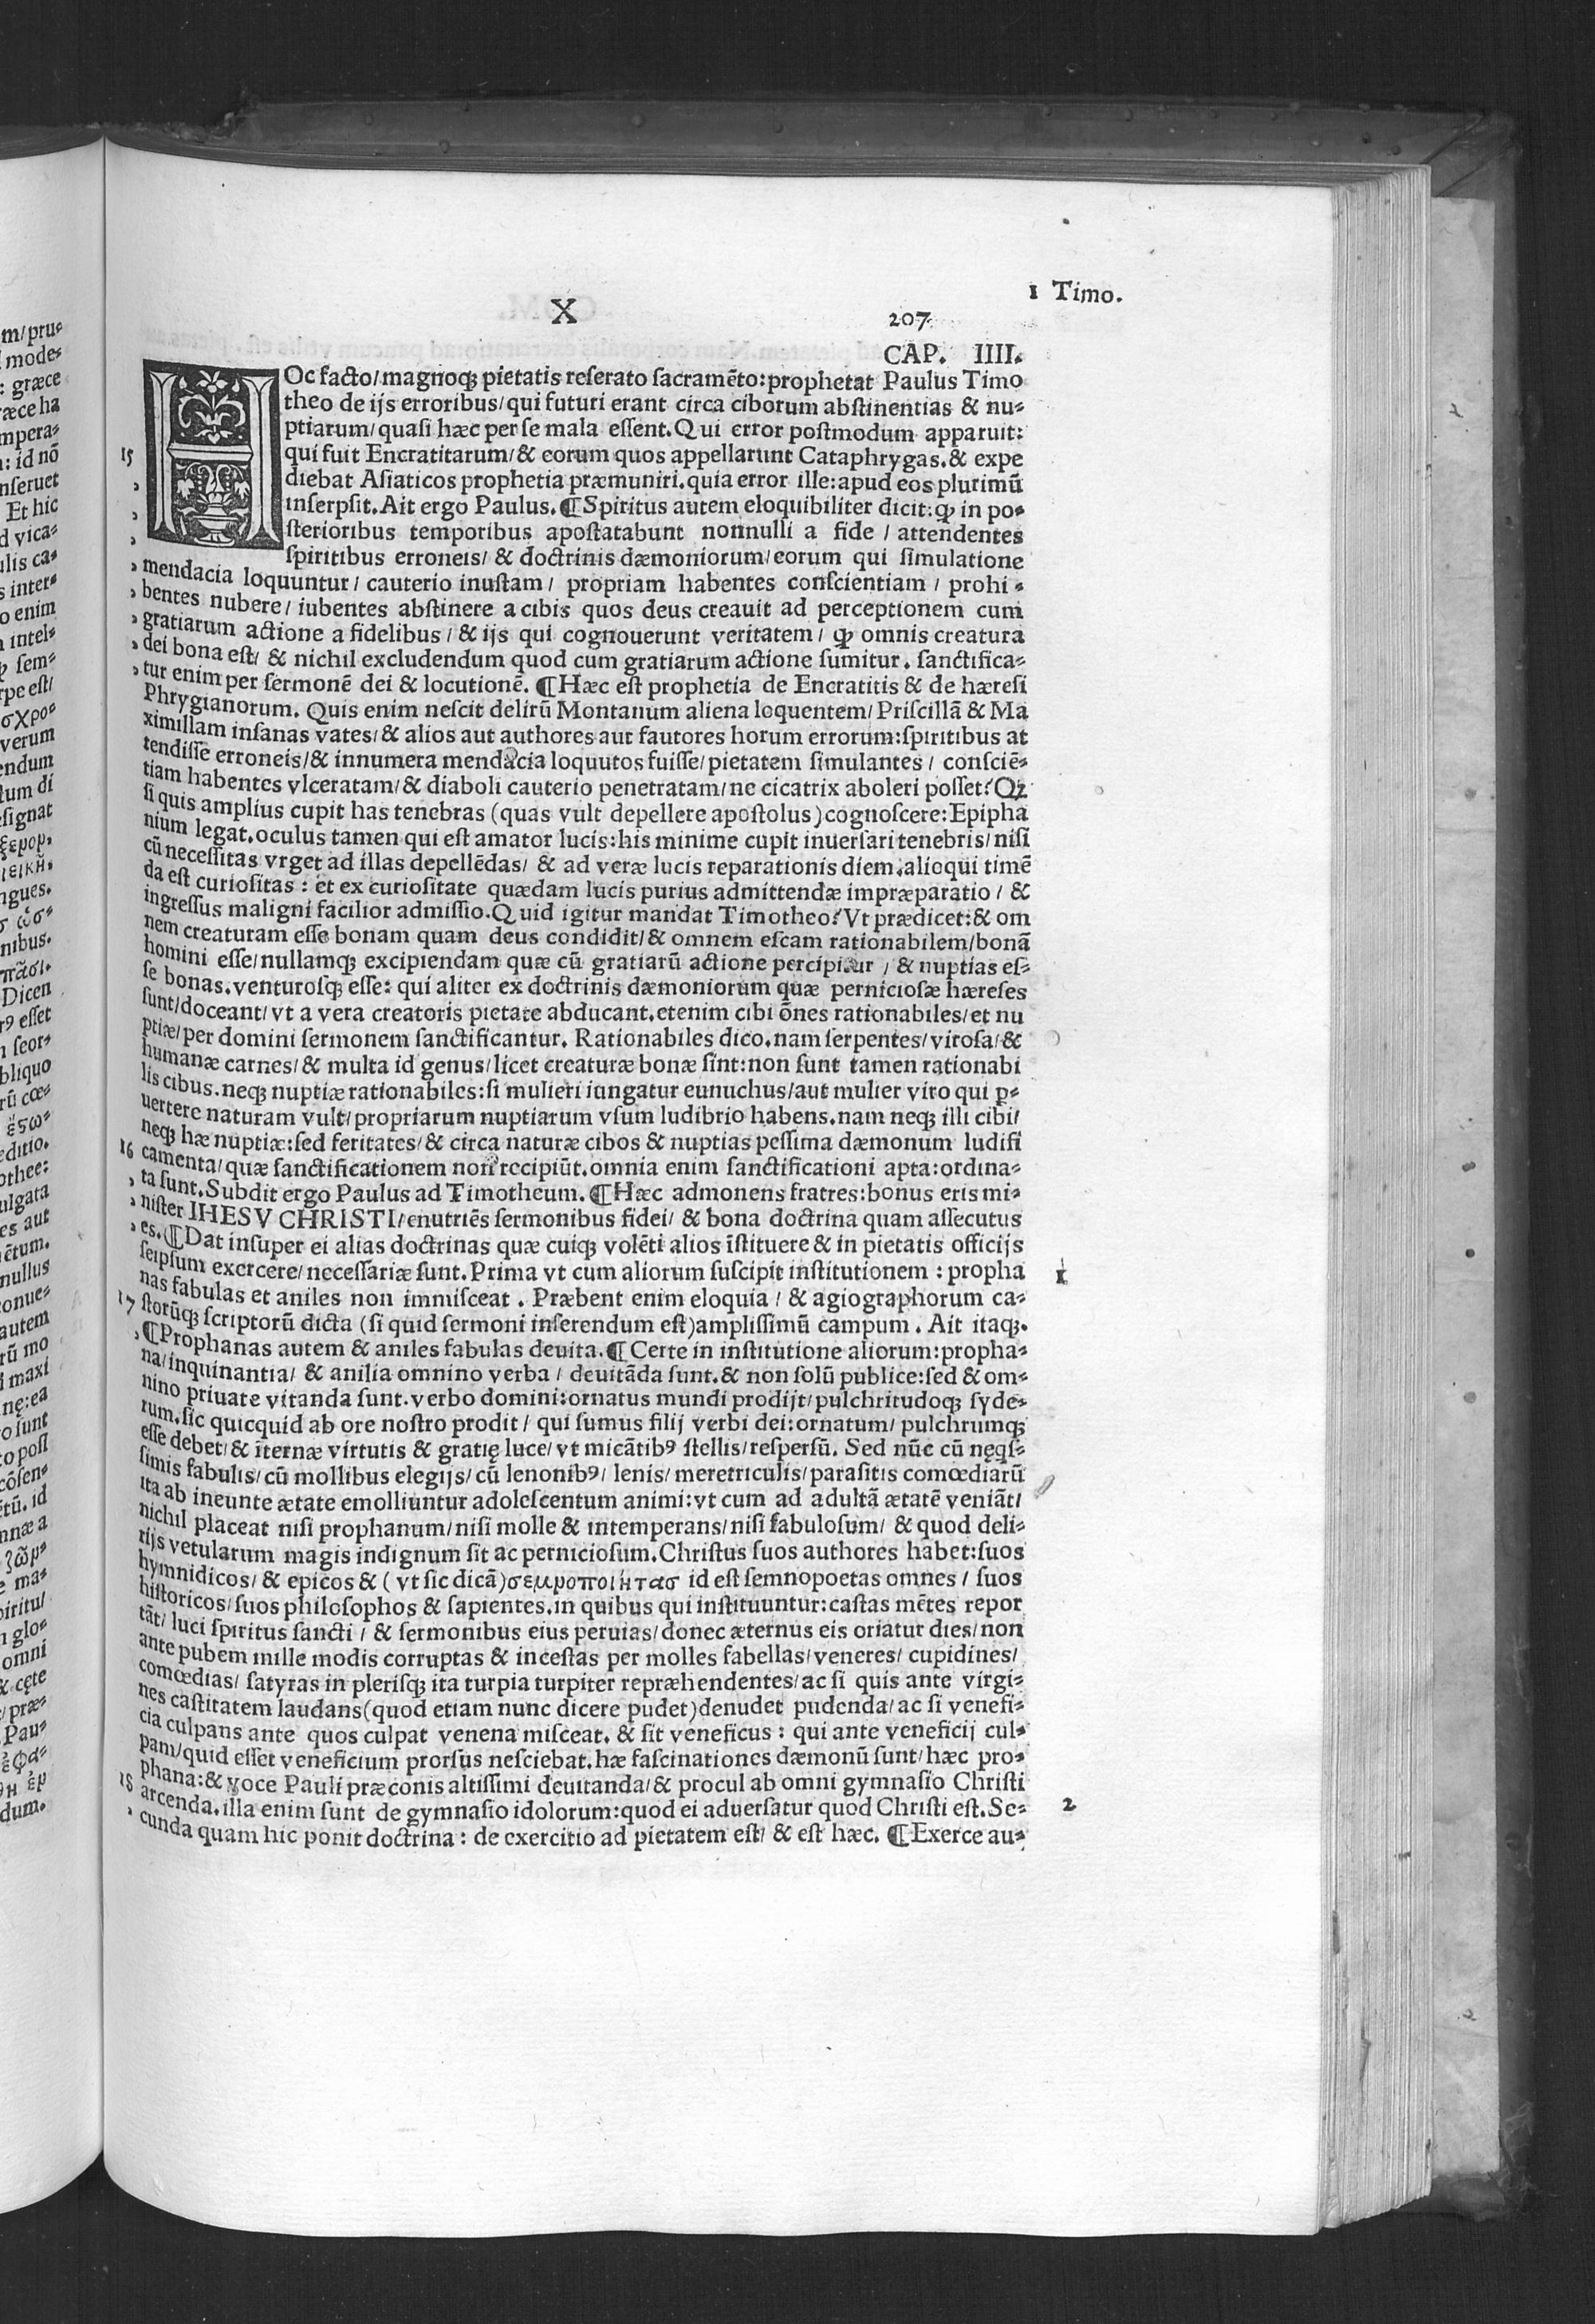 X
1 Timo.
207
CAP. IIII.
HOc facto/magnoqꝫ pietatis reserato sacramēto:prophetat Paulus Timo
theo de ijs erroribus/qui futuri erant circa ciborum abstinentias & nu-
ptiarum/quasi hæc per se mala essent.Qui error postmodum apparuit:
15 qui fuit Encratitarum/& eorum quos appellarunt Cataphrygas.& expe
diebat Asiaticos prophetia præmuniri.quia error ille:apud eos plurimū
inserpsit.Ait ergo Paulus.¶Spiritus autem eloquibiliter dicit:ꝙ in po-
sterioribus temporibus apostatabunt nonnulli a fide / attendentes
spiritibus erroneis/ & doctrinis dæmoniorum/eorum qui simulatione
mendacia loquuntur/ cauterio inustam/ propriam habentes conscientiam / prohi-
bentes nubere/ iubentes abstinere a cibis quos deus creauit ad perceptionem cum
gratiarum actione a fidelibus / & ijs qui cognouerunt veritatem/ ꝙ omnis creatura
dei bona est/ & nichil excludendum quod cum gratiarum actione sumitur. sanctifica-
tur enim per sermonē dei & locutionē. ¶Hæc est prophetia de Encratitis & de hæresi
Phrygianorum. Quis enim nescit delirū Montanum aliena loquentem/ Priscillā & Ma
ximillam insanas vates/& alios aut authores aut fautores horum errorum:spiritibus at
tendisse erroneis/& innumera mendacia loquutos fuisse/pietatem simulantes / consciē-
tiam habentes vlceratam/& diaboli cauterio penetratam/ne cicatrix aboleri posset? Qꝫ
si quis amplius cupit has tenebras (quas vult depellere apostolus)cognoscere:Epipha
nium legat.oculus tamen qui est amator lucis:his minime cupit inuersari tenebris/nisi
cū necessitas vrget ad illas depellēdas/ & ad veræ lucis reparationis diem.alioqui timē
da est curiositas : et ex curiositate quædam lucis purius admittendæ impræparatio / &
ingressus maligni facilior admissio.Quid igitur mandat Timotheo? Vt prædicet:& om
nem creaturam esse bonam quam deus condidit/& omnem escam rationabilem/bonā
homini esse/nullamqꝫ excipiendam quæ cū gratiarū actione percipitur / & nuptias es-
se bonas.venturosqꝫ esse: qui aliter ex doctrinis dæmoniorum quæ perniciosæ hæreses
sunt/doceant/vt a vera creatoris pietate abducant.etenim cibi ōnes rationabiles/et nu
ptiæ/per domini sermonem sanctificantur. Rationabiles dico.nam serpentes/virosa/&
humanæ carnes/& multa id genus/licet creaturæ bonæ sint:non sunt tamen rationabi
lis cibus.neqꝫ nuptiæ rationabiles:si mulieri iungatur eunuchus/aut mulier viro qui ꝑ-
uertere naturam vult/propriarum nuptiarum vsum ludibrio habens.nam neqꝫ illi cibi/
neqꝫ hæ nuptiæ:sed feritates/& circa naturæ cibos & nuptias pessima dæmonum ludifi
16 camenta/quæ sanctificationem non recipiūt.omnia enim sanctificationi apta:ordina-
ta sunt.Subdit ergo Paulus ad Timotheum.¶Hæc admonens fratres:bonus eris mi-
nister IHESV CHRISTI/enutriēs sermonibus fidei/ & bona doctrina quam assecutus
es.¶Dat insuper ei alias doctrinas quæ cuiqꝫ volēti alios īstituere & in pietatis officijs
seipsum exercere/necessariæ sunt.Prima vt cum aliorum suscipit institutionem : propha 1
nas fabulas et aniles non immisceat . Præbent enim eloquia / & agiographorum ca-
17 storūqꝫ scriptorū dicta (si quid sermoni inserendum est)amplissimū campum. Ait itaqꝫ.
¶Prophanas autem & aniles fabulas deuita.¶Certe in institutione aliorum:propha-
na/inquinantia/ & anilia omnino verba / deuitāda sunt.& non solū publice:sed & om-
nino priuate vitanda sunt.verbo domini:ornatus mundi prodijt/pulchritudoqꝫ syde-
rum.sic quicquid ab ore nostro prodit / qui sumus filij verbi dei:ornatum/ pulchrumqꝫ
esse debet/& īternæ virtutis & gratię luce/vt micātibꝰ stellis/respersū. Sed nūc cū nęqs-
simis fabulis/cū mollibus elegijs/cū lenonibꝰ/ lenis/meretriculis/parasitis comœdiarū
ita ab ineunte ætate emolliuntur adolescentum animi:vt cum ad adultā ætatē veniāt/
nichil placeat nisi prophanum/nisi molle & intemperans/nisi fabulosum/ & quod deli-
rijs vetularum magis indignum sit ac perniciosum.Christus suos authores habet:suos
hymnidicos/& epicos & (vt sic dicā)σεμνοποιητασ id est semnopoetas omnes / suos
historicos/suos philosophos & sapientes.in quibus qui instituuntur:castas mētes repor
tāt/ luci spiritus sancti / & sermonibus eius peruias/donec æternus eis oriatur dies/non
ante pubem mille modis corruptas & incestas per molles fabellas/veneres/ cupidines/
comœdias/ satyras in plerisqꝫ ita turpia turpiter repræhendentes/ac si quis ante virgi-
nes castitatem laudans(quod etiam nunc dicere pudet)denudet pudenda/ac si venefi-
cia culpans ante quos culpat venena misceat. & sit veneficus : qui ante veneficij cul-
pam/quid esset veneficium prorsus nesciebat.hæ fascinationes dæmonū sunt/hæc pro-
phana:& voce Pauli præconis altissimi deuitanda/& procul ab omni gymnasio Christi
18 arcenda.illa enim sunt de gymnasio idolorum:quod ei aduersatur quod Christi est.Se- 2
cunda quam hic ponit doctrina : de exercitio ad pietatem est/ & est hæc. ¶Exerce au-